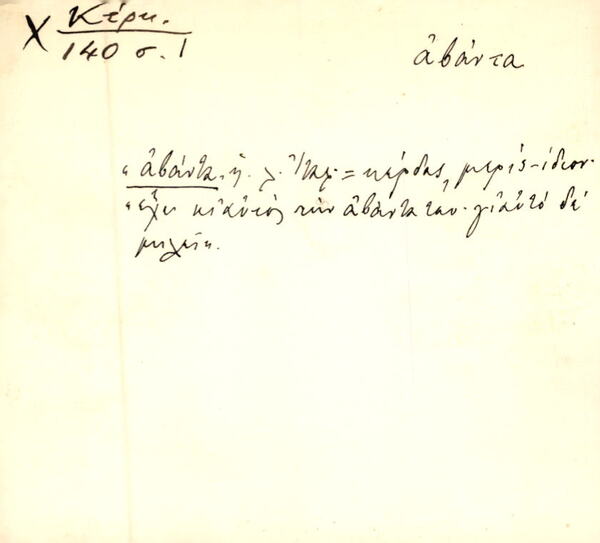 Χ Κέρκ.
140 σ. 1
ἀβάντα
"ἀβάντα, ἡ. λ. Ἰταλ. = κέρδος, μερίς - ἴδιον.
"ἔχει κι αὐτὸς τὴν ἀβάντα του. γι αὐτό δέ
μιλάει.